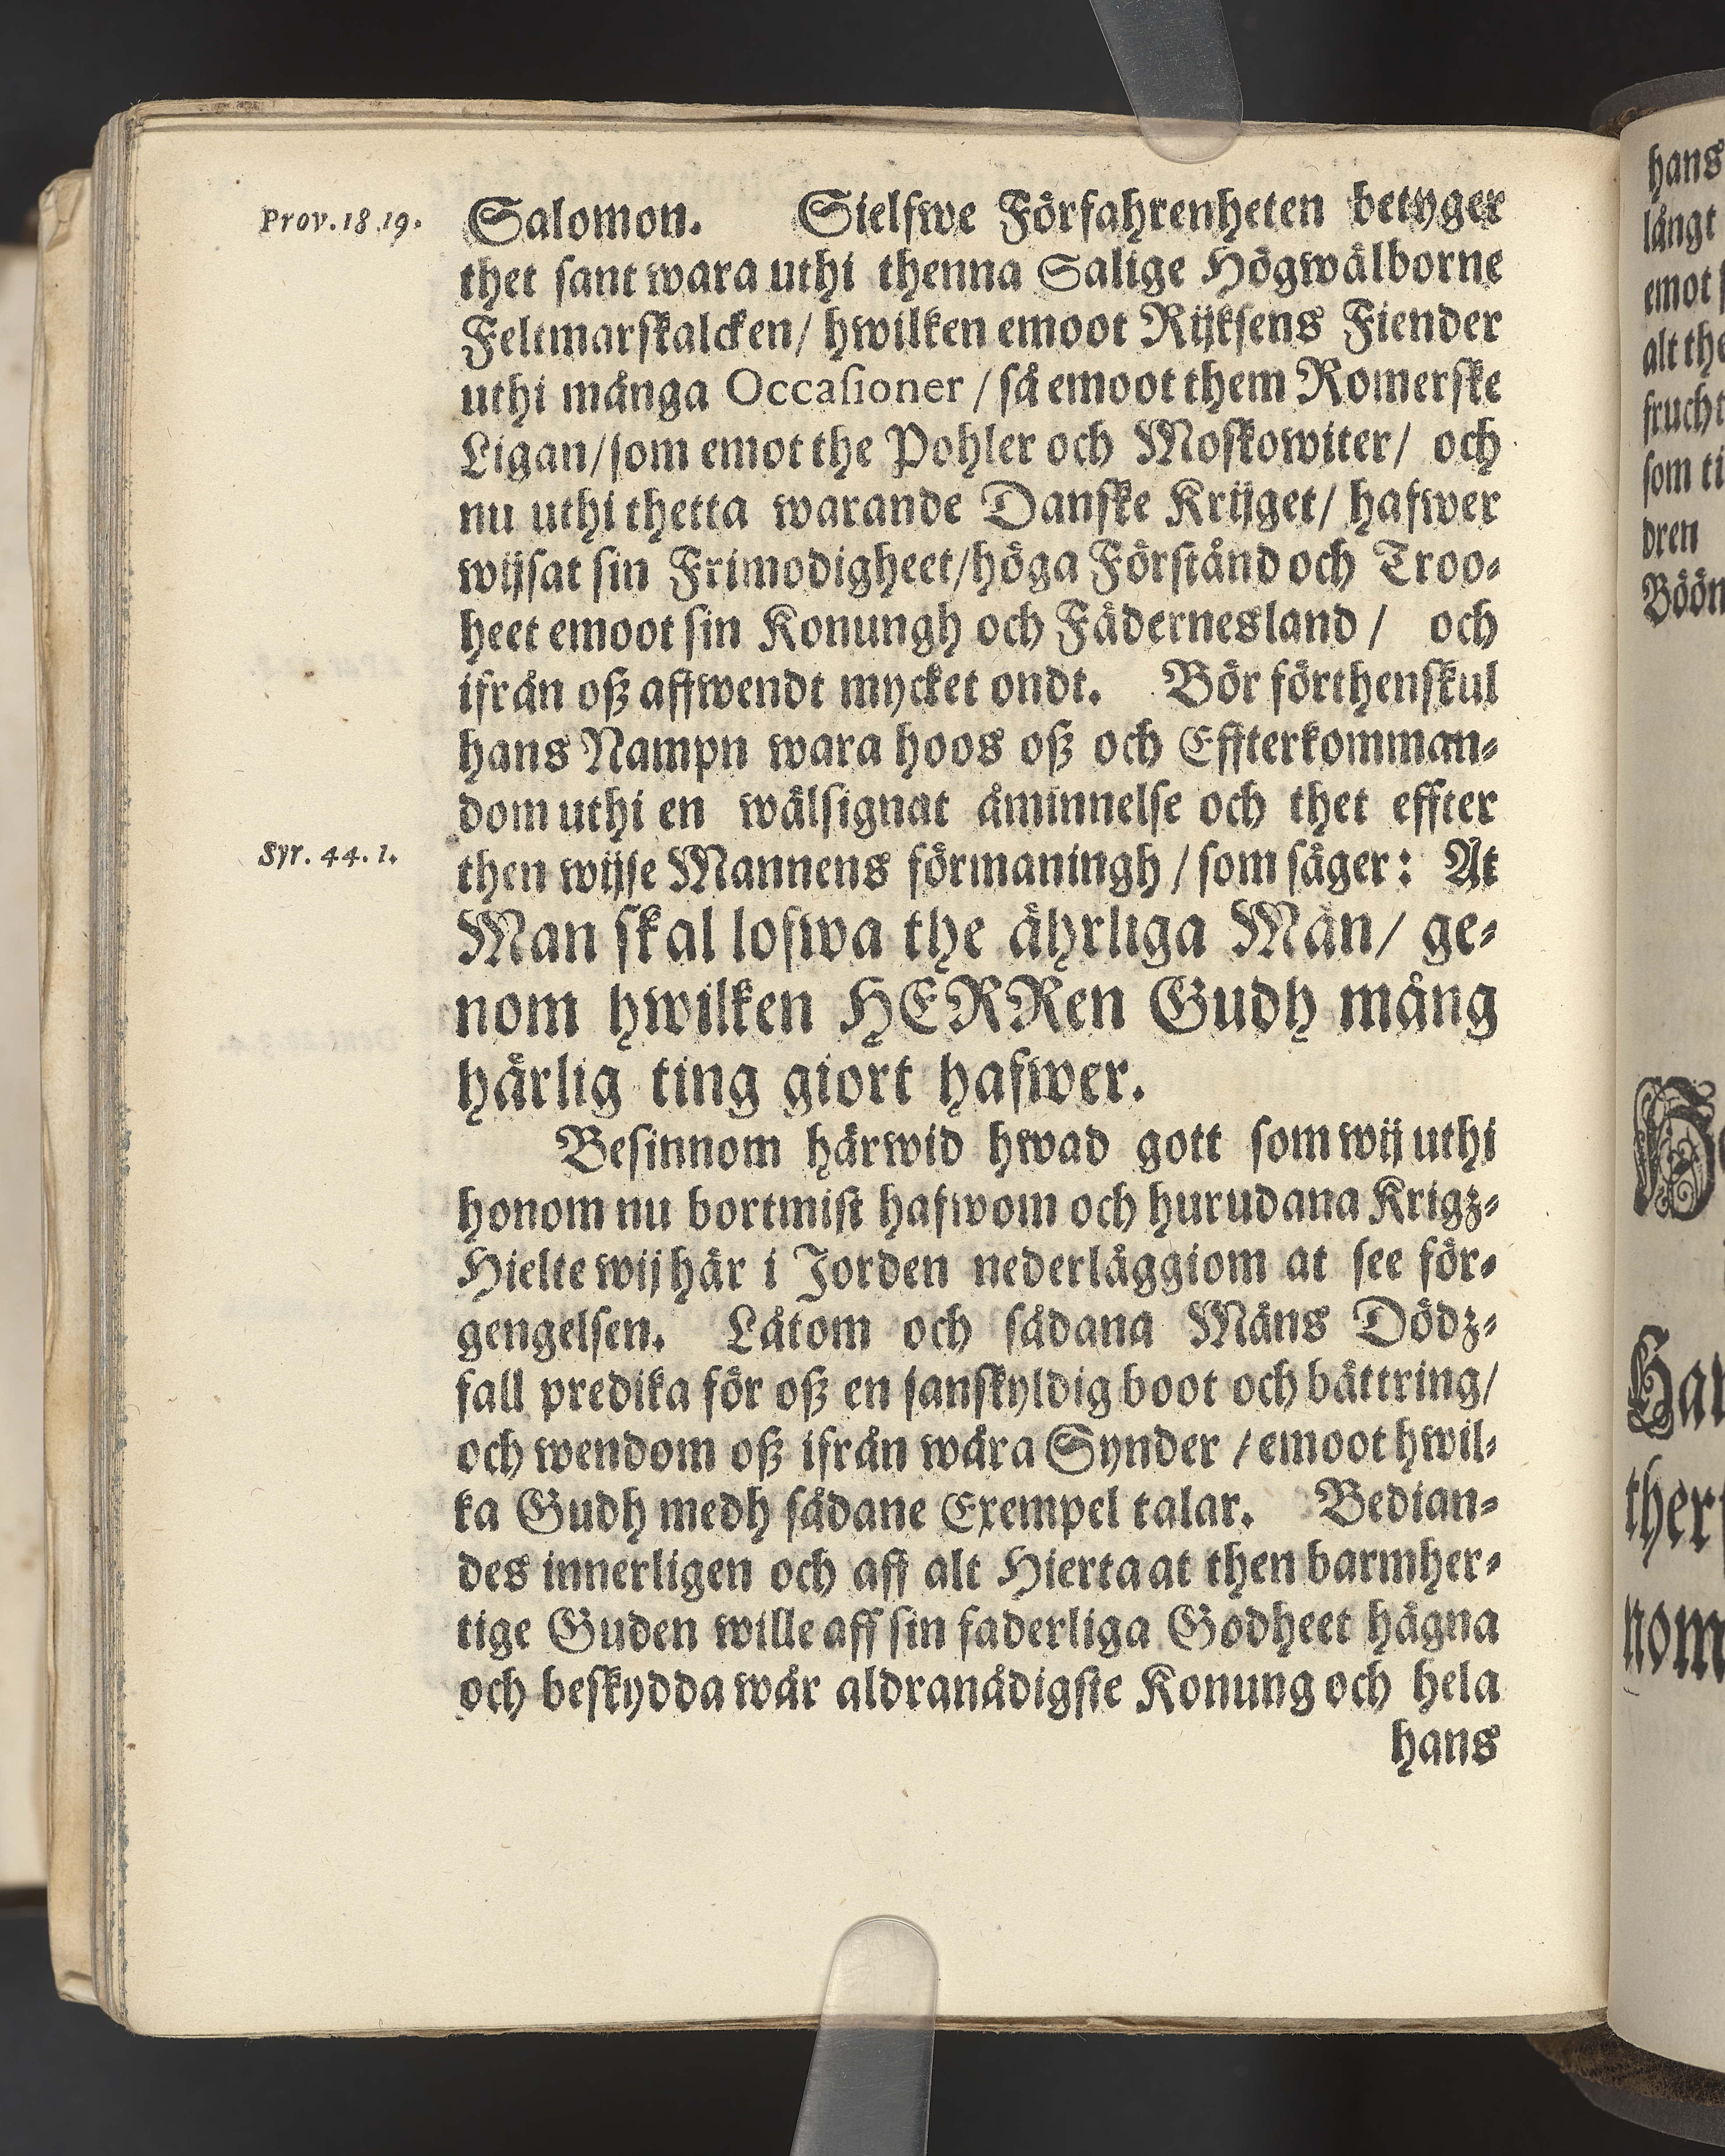 Prov. 18 19.
Salomon. Sielfwe Förfahrenheten betyger
thet sant wara uthi thenna Salige Högwälborne
Feltmarskalcken/ hwilken emoot Rijksens Fiender
uthi många Occasioner / så emoot them Romerske
Ligan/ som emot the Pohler och Moskowiter/ och
nu uthi thetta warande Danske Krijget/ hafwer
wijsat sin Frimodigheet/ höga Förstånd och Troo-
heet emoot sin Konungh och Fädernesland / och
ifrån oß affwendt mycket ondt. Bör förthenskul
hans Nampn wara hoos oß och Effterkomman-
dom uthi en wälsignat åminnelse och thet effter
Syr. 44. 1.
then wijse Mannens förmaningh / som säger: At
Man skal lofwa the ährliga Män/ ge-
nom hwilken HERRen Gudh mång
härlig ting giort hafwer.
Besinnom härwid hwad gott som wij uthi
honom nu bortmist hafwom och hurudana Krigz-
Hielte wij här i Jorden nederläggiom at see för-
gengelsen. Låtom och sådana Mäns Dödz-
fall predika för oß en sanskyldig boot och bättring/
och wendom oß ifrån wåra Synder / emoot hwil-
ka Gudh medh sådane Exempel talar. Bedian-
des innerligen och aff alt Hierta at then barmher-
tige Guden wille aff sin faderliga Godheet hägna
och beskydda wår aldranådigste Konung och hela
hans
hans
långt
emot
alt the
frucht
som ti
dren
Böön
ther
nom